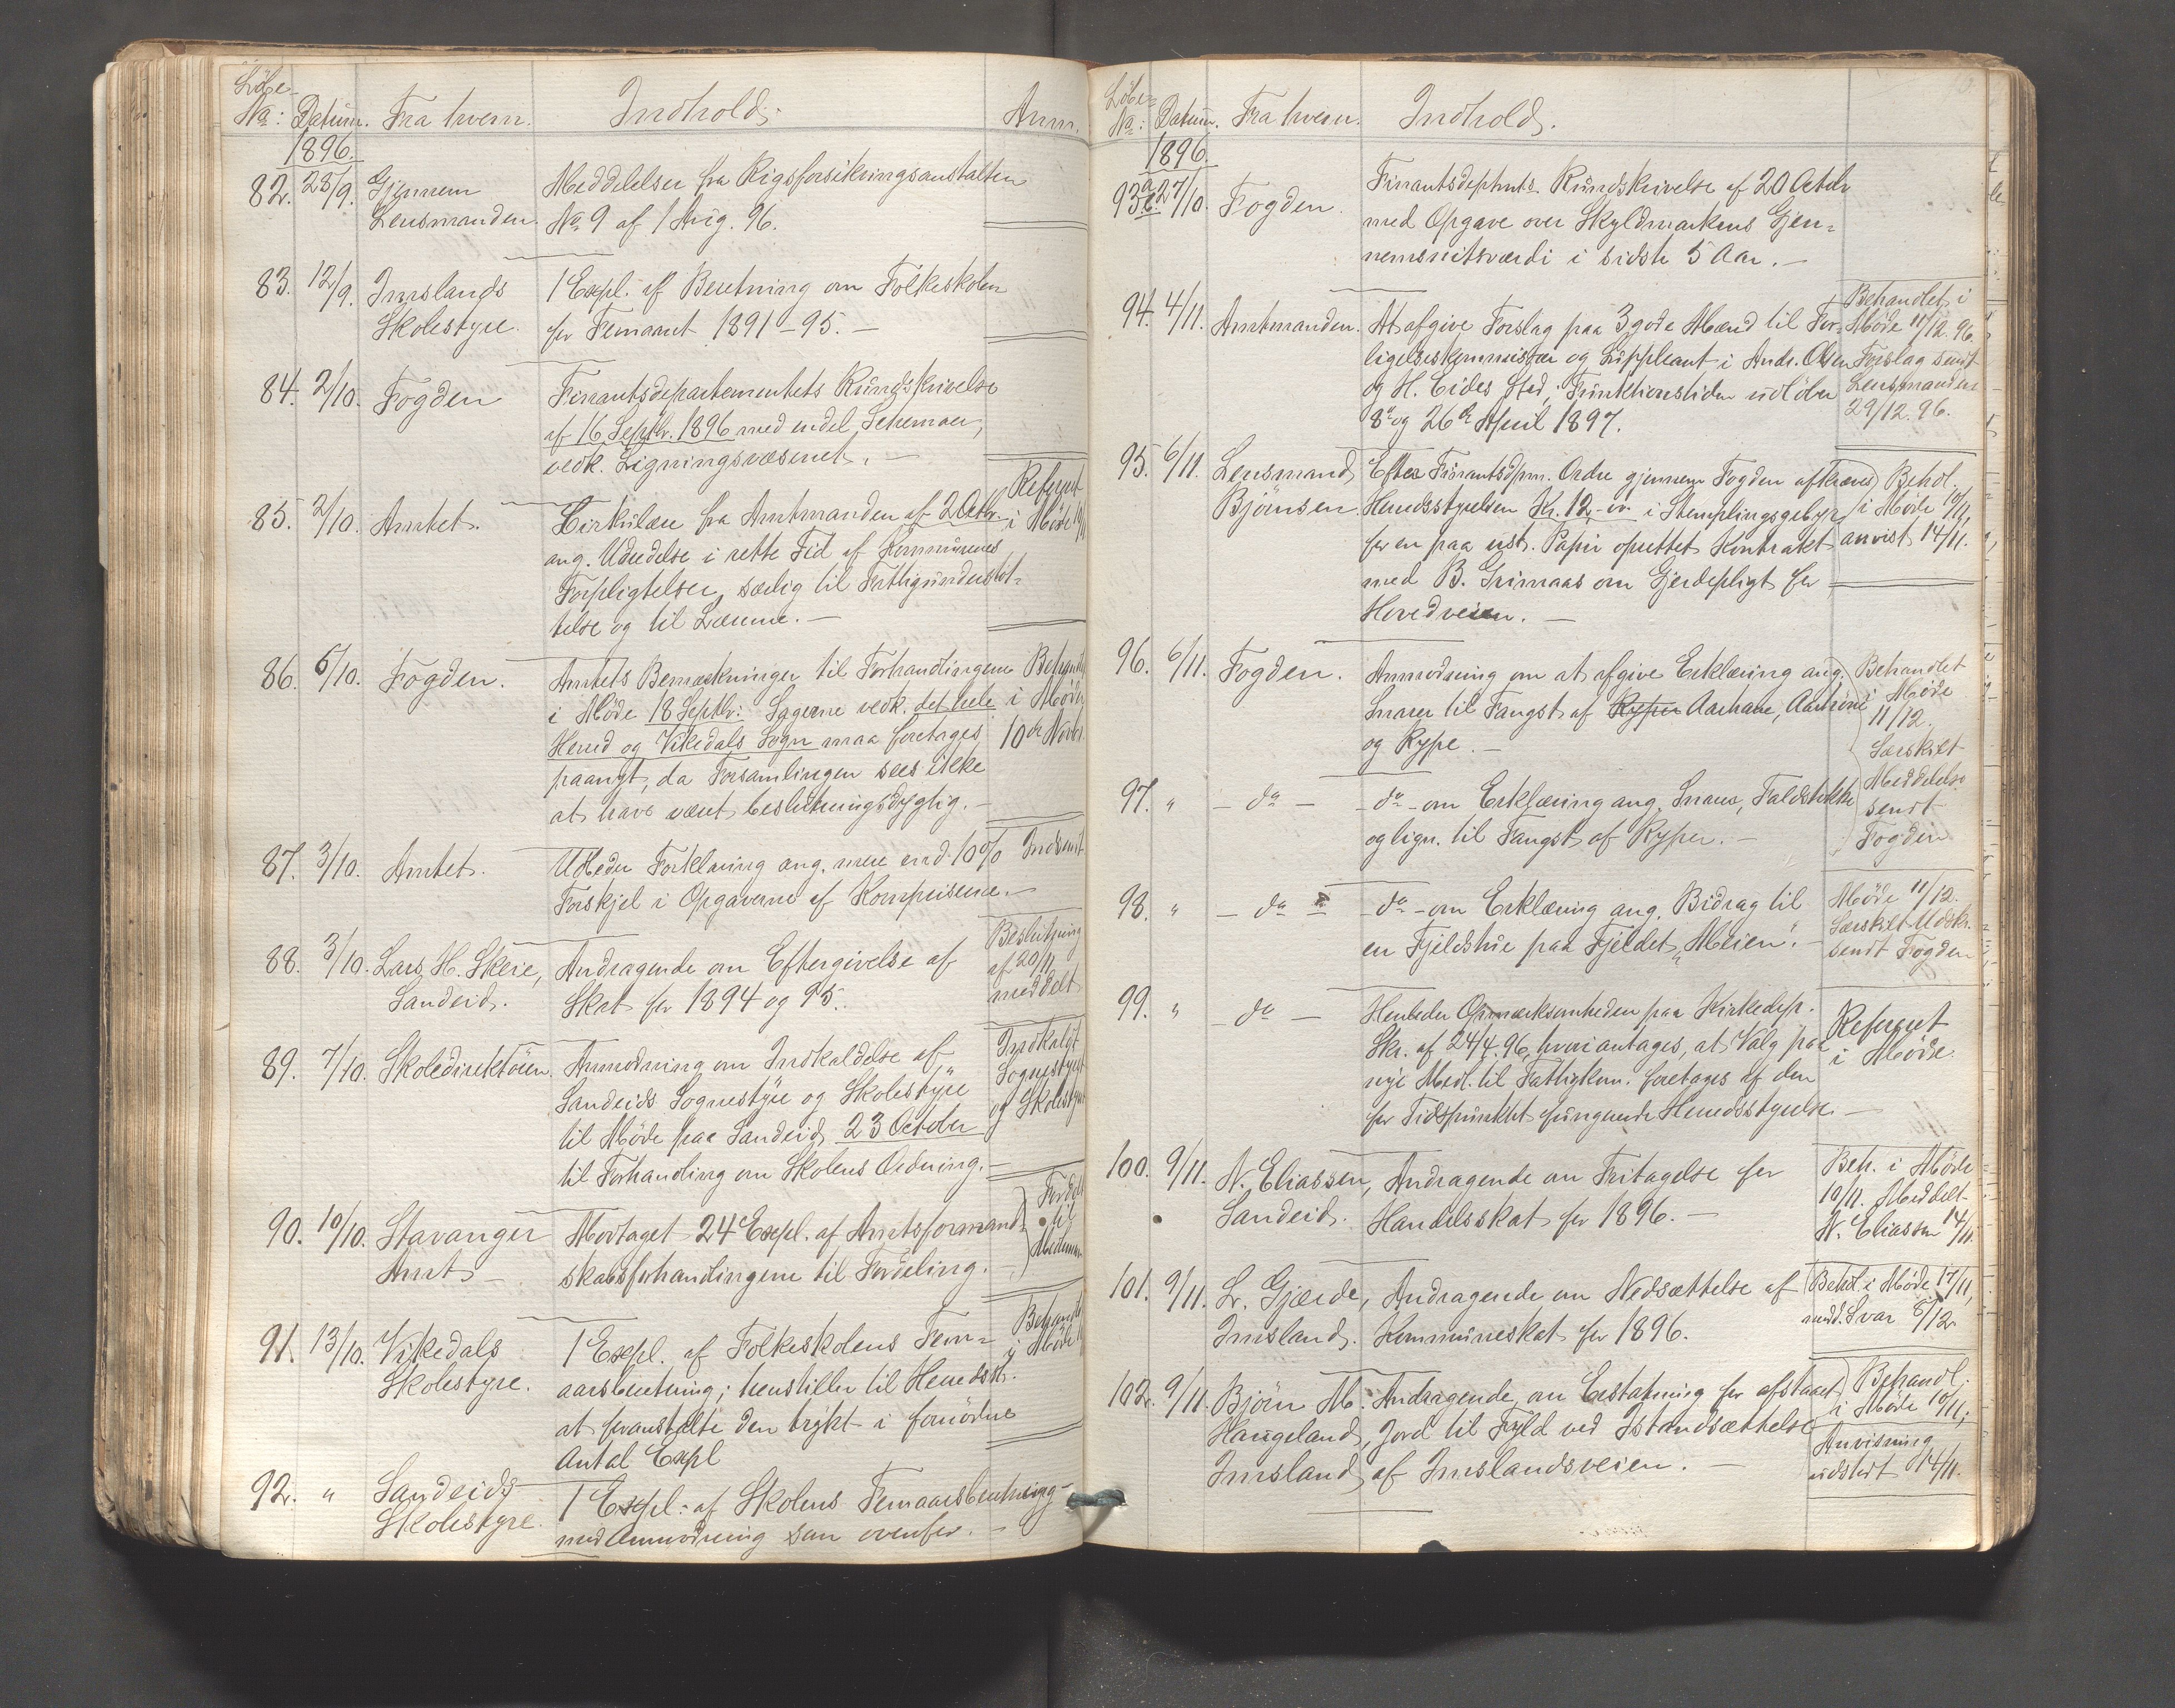 Löbe-
No: Datum. Fra hvem. Indhold. Anm.
1896.
82. 28/9. Gjennem Meddelelser fra Rigsforsikringsanstalten
Lensmanden. No 9 af 1 Aug. 96.
83. 12/9. Imslands 1 Expl. af Beretning om Folkeskolen
Skolestyre. for Femaaret 1891-95.-
84. 2/10. Fogden Finantsdepartementets Rundskrivelse
af 16 Septbr. 1896 med endel Schemaer,
vedk. Ligningsvæsenet.-
85. 2/10. Amtet. Cirkulære fra Amtmanden af 2 Octbr. Referert
ang. Udredelse i rette Tid af Kommunernes i Möde
Forpligtelser, særlig til Fattigunderstöt=
telse og til Lærerne.-
86. 6/10. Fogden. Amtets Bemærkninger til Forhandlingerne
i Möde 18 Septbr: Sagerne vedk. det hele i Möde
Herred og Vikedals Sogn maa foretages 10de Novbr
paanyt, da Forsamlingen sees ikke
at have været beslutningsdygtig.-
87. 3/10. Amtet. Udbeder Forklaring ang. mere end 10% Indsendt
Forskjel i Opgaverne af Kornpriserne.-
88. 3/10. Lars H. Skeie, Andragende om Eftergivelse af Beslutning
Sandeid. Skat for 1894 og 95. af 20/11 meddelt
89. 7/10. Skoledirektören. Anmodning om Indkaldelse af Indkaldt
Sandeids Sognestyre og Skolestyre Sognestyret
til Möde paa Sandeid 23 October og Skolestyret
til Forhandling om Skolens Ordning.-
90. 10/10. Stavanger Modtaget 24 Expl. af Amtsformand= Fordelt
Amt skabsforhandlingerne til Fordeling.- til
91. 13/10. Vikedals 1 Expl. af Folkeskolens Fem=
Skolestyre. aarsberetning; henstiller til Herredsst. i Möde
at foranstalte den trykt i fornödne
Antal Expl
92. " Sandeids 1 Expl. af Skolens Femaarsberetning
Skolestyre. med Anmodning som ovenfor.-
Löbe=
No: Datum. Fra hvem. Indhold.
1896.
93 a 27/10. Fogden. Finantsdeptmts Rundskrivelse af 20 Octbr
med Opgave over Skyldmarkens Gjen=
nemsnitsværdi i sidste 5 Aar.-
94. 4/11. Amtmanden. At afgive Forslag paa 3 gode Mænd til For= Behandlet i
ligelseskommissær og Suppleant i Andr. Olsen Möde 11/12.96.
og H. Eides Sted, Funktionstiden udlöber Forslag sendt
8de og 26de April 1897. Lensmanden
29/12.96.
95. 6/11. Lensmand Efter Finantsdpm. Ordre gjennem Fogden afkræves Behdl.
Björnsen. Herredsstyrelsen Kr. 12.- i Stemplingsgebyr i Möde 10/11,
for en paa ust. Papir oprettet Kontrakt anvist 14/11.
med B. Grimaas om Gjerdepligt for
Hovedveien.-
96. 6/11. Fogden. Anmodning om at afgive Erklæring ang. Behandlet
Snarer til Fangst af Ryper Aarhane, Aarhöne i Möde
og Rype.- 11/12.
Særskilt
Meddelelse
97. " - do - - do - om Erklæring ang. Snarer, Faldstokke sendt
og lign. til Fangst af Ryper.- Fogden
98. " - do - - do - om Erklæring ang. Bidrag til Möde 11/12.
en Fjeldstue paa Fjeldet "Meien".- Særskilt Udskr.
sendt Fogden
99. " - do - Henleder Opmærksomheden paa Kirkedep. Referert
Skr. af 24/4.96, hvori antages, at Valg paa i Möde.
nye Medl. til Fattigkom. foretages af den
for Tidspunktet fungerende Herredsstyrelse.-
100. 9/11. N. Eliassen, Andragende om Fritagelse for Beh. i Möde
Sandeid. Handelsskat for 1896.- 10/11. Meddelt
N. Eliassen 14/11.
101. 9/11. L. Gjærde, Andragende om Nedsættelse af Behdl. i Möde 17/11,
Imsland. Kommuneskat for 1896. medd. Svar 8/12
102. 9/11. Björn M. Andragende om Erstatning for afstaaet Behandl.
Haugeland, Jord til Fyld ved Istandsættelse i Möde 10/11;
Imsland af Imslandsveien.- Anvisning
udstedt 14/11.